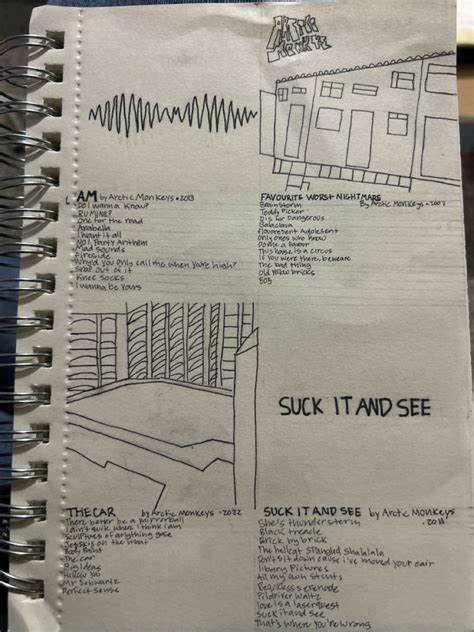 ARCTIC
MONKEYS
AM by Arctic Monkeys • 2013
Do I wanna Know?
R U MINE?
One for the road
Arabella
I want it all
No1 Party Anthem
Mad Sounds
Fireside
Why'd you Only call me when you're high?
Snap out of it
Knee socks
I wanna be yours
FAVOURITE WORST NIGHTMARE
By Arctic Monkeys • 2007
Brainstorm
Teddy Picker
D is for Dangerous
Balaclava
Fluorescent Adolesent
Only ones who know
Do me a favour
This house is a circus
If you were there, beware
The bad thing
Old yellow bricks
505
SUCK IT AND SEE
THE CAR by Arctic Monkeys • 2022
There better be a mirrorball
I ain't quite where I think I am
Sculptures of anything goes
Jet skis on the moat
Body Paint
The car
Big Ideas
Hello You
Mr Schwartz
Perfect sense
SUCK IT AND SEE by Arctic Monkeys
• 2011
She's thunderstorm
Black treacle
Brick by brick
The hellcat spangled shalalala
Don't sit down cause i've moved your cair
library Pictures
All my own stunts
Reckless serenade
Piledriver Waltz
love is a laserquest
Suck it and see
That's where you're Wrong